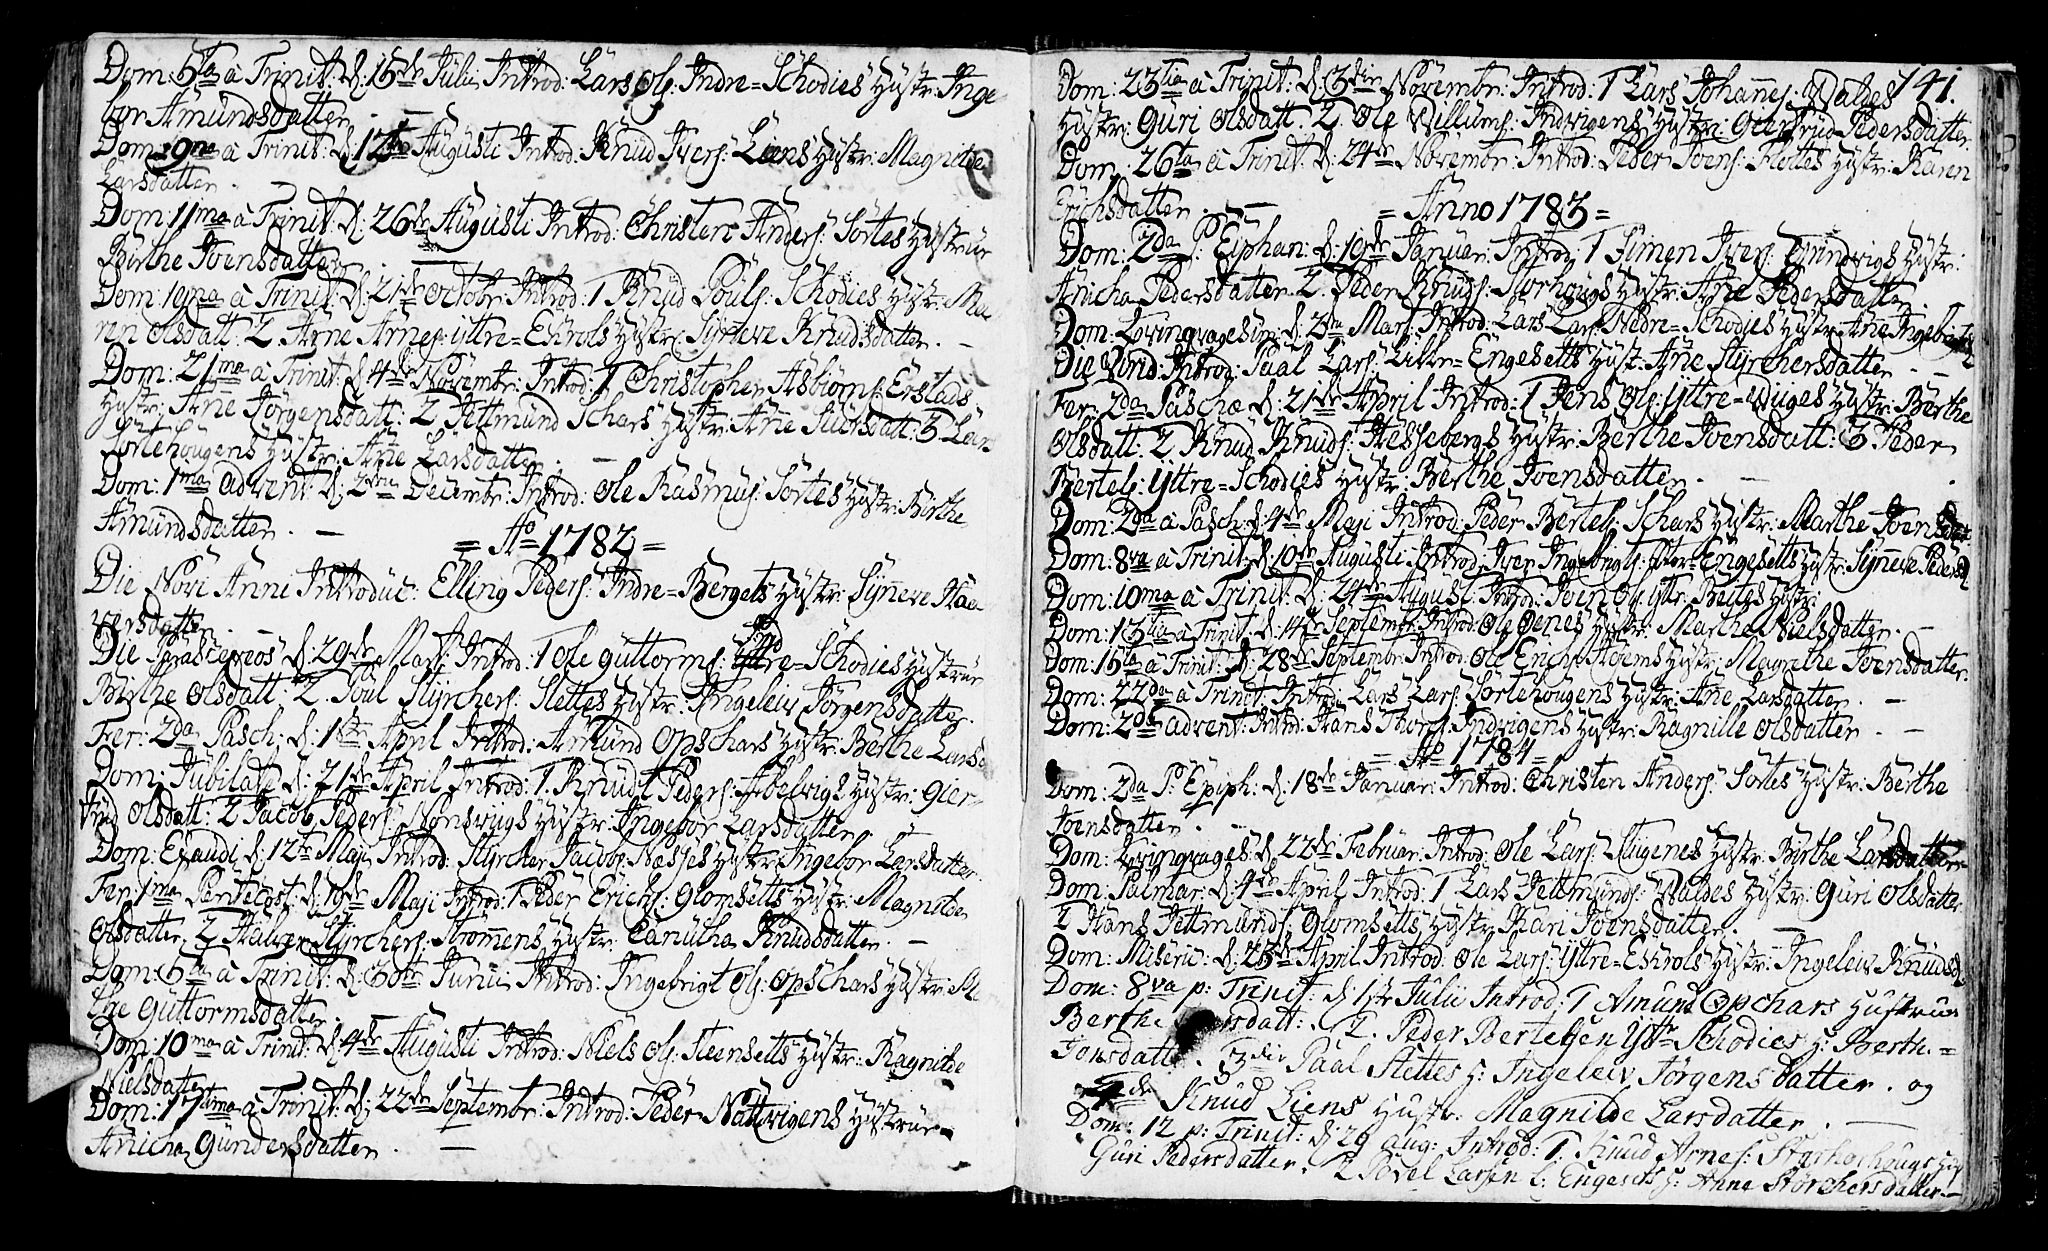 Dom: 5ta à Trinit: d: 15de Julii Introd: Lars Ols: Indre=Schodies Hustr: Inge
bor Amundsdatter.
Dom: 9na à Trinit: d: 12te Augusti Introd: Knud Ivers: Liens Hustr: Magnilde
Larsdatter.
Dom: 11ma à Trinit: d: 26de Augusti Introd: Christen Anders: Sortes Hustrue
Birthe Joensdatter.
Dom: 19na à Trinit: d: 21de Octobr: Introd: 1 Knud Pouls: Schodies Hustr: Ma
ren Olsdatt: 2 Arne Arnes: Yttre=Eskrols Hustr: Syneve Knudsdatter. –
Dom: 21ma à Trinit: d: 4de Novembr: Introd: 1 Christopher Asbiørns: Erstads
Hustr: Ane Jørgensdatt: 2 Jettmund Schars Hustr: Ane Siversdatt: 3 Lars
Sortehougens Hustr: Ane Larsdatter. –
Dom: 1ma Advent d: 2den Decembr: Introd: Ole Rasmus: Sortes Hustr: Birthe
Amundsdatter. –
= Ao 1782 =
Die Novi Anni Introduc: Elling Peders: Indre=Bergets Hustr: Synneve Haa
versdatter.
Die Parasceveos d: 29de Mart: Introd: 1 Ole Guttorms: Yttre=Schodies Hustrue
Birthe Olsdatt: 2. Poul Styrchers: Slettes Hustr: Ingeleiv Jørgensdatter.
Fer: 2da Pasch: d: 1ste April Introd: Amund Opschars Hustr: Berthe Larsd
Dom: Jubilate d: 21de April Introd: 1. Knud Peders: Abelvigs Hustr: Gier
trud Olsdatt: 2 Jacob Peders: Nonsvigs Hustr: Ingebor Larsdatter.
Dom: Exaudi d: 12te Maji Introd: Styrcher Jacobs: Næsjes Hustr: Ingebor Larsdatter.
Fer: 1ma Pentecost: d: 19de Maji Introd: 1 Peder Erichs: Glomsetts Hustr: Magnilde
Olsdatter 2 Halvor Styrchers: Strømmens Hustr: Canutha Knudsdatter. –
Dom: 5ta à Trinit: d: 30te Junii Introd: Ingebrigt Ols: Opschars Hustr:
the Guttormsdatter.
Dom: 10ma à Trinit: d: 4de Augusti Introd: Niels Ols: Steensetts Hustr: Ragnilde
Nielsdatter.
Dom: 17tima à Trinit: d: 22de Septembr: Introd: Peder Nattvigens Hustrue
Anicha Gundersdatter. –
141.
Dom: 23tia à Trinit: d: 3die Novembr: Introd: 1 Lars Johannes: Waldes
Hustr: Guri Olsdatt: 2. Ole Willums: Indvigens Hustr: Giertrud Pedersdatter.
Dom: 26ta à Trinit: d: 24de Novembr: Introd: Peder Joens: Flottes Hustr: Karen
Erichsdatter. –
= Anno 1783 =
Dom: 2da P: Epiphan: d: 19de Januar: Introd: 1 Simen Ivers: Tyindvigs Hustr:
Anicha Pedersdatter. 2. Peder Knuds: Storhougs Hustr: Ane Pedersdatter.
Dom: Qvinqvagesim: d: 2den Mart: Introd: Lars Lars: Nedre=Schodies Hustr: Ane Ingebrigtsd
Die Virid: Introd: Paal Lars: Lille=Engesetts Hustr: Ane Styrchersdatter. –
Fer: 2da Paschæ d: 21de April Introd: 1 Jens Ols: Yttre=Wiiges Hustr: Berthe
Olsdatt: 2 Knud Knuds: Hessebergs Hustr: Berthe Joensdatt: 3. Peder
Bertels: Yttre=Schodies Hustr: Berthe Joensdatter. –
Dom: 2da à Pasch: d: 4de Maji Introd: Peder Bertels: Schars Hustr: Marthe Joensdatt
Dom: 8va à Trinit: d: 10de Augusti Introd: Iver Ingebrigts: Stor=Engesetts Hustr: Synneve Pedersd
Dom: 10ma à Trinit: d: 24de August: Introd: Joen Ols: Yttr: Breites Hustr:
Dom: 13tia à Trinit: d: 14de Septembr: Introd: Ole Oenes Hustr: Marthe Nielsdatter. –
Dom: 15ta à Trinit: d: 28de Septembr: Introd: Ole Erichs: Hoems Hustr: Magrethe Joensdatter
Dom: 22da à Trinit: Introd: Lars Lars: Sortehougens Hustr: Ane Larsdatter. –
Dom: 2da Advent: Introd: Hans Thores: Indvigens Hustr: Ragnille Olsdatter. –
= Ao 1784 =
Dom: 2da P: Epiph: d: 18de Januar: Introd: Christen Anders: Sortes Hustr: Berthe
Joensdatter. –
Dom: Qvinqvages: d: 22de Februar: Introd: Ole Lars: Stugenes Hustr: Birthe Larsdatter
Dom: Palmar: d: 4de April Introd: 1 Lars Jettmunds: Waldes Hustr: Guri Olsdatter
2 Hans Jettmunds: Glomsetts Hustr: Kari Joensdatter.
Dom: Miseric: d: 25de April Introd: Ole Lars: Yttre=Eskrols Hustr: Ingeleiv Knudsd
Dom: 8va p: Trinit: d: 1ste Julii Introd: 1 Amund Opchars Hustrue
Berthe Larsdatt: 2. Peder Bertelsen Ytr Schodies H: Berthe =
Jonsdatter. 3die Paal Slettes H: Ingeleiv Jørgens datter. og
4de Knud Liens Hustr. Magnilde Larsdatter. –
Dom: 12 p: Trinit: d: 29 aug: Introd: 1. Knud Arnes: Storhougs Hus
Guri Pedersdatter. 2 Povel Larsen L: Engesets H: Anne Størchersdatter. –